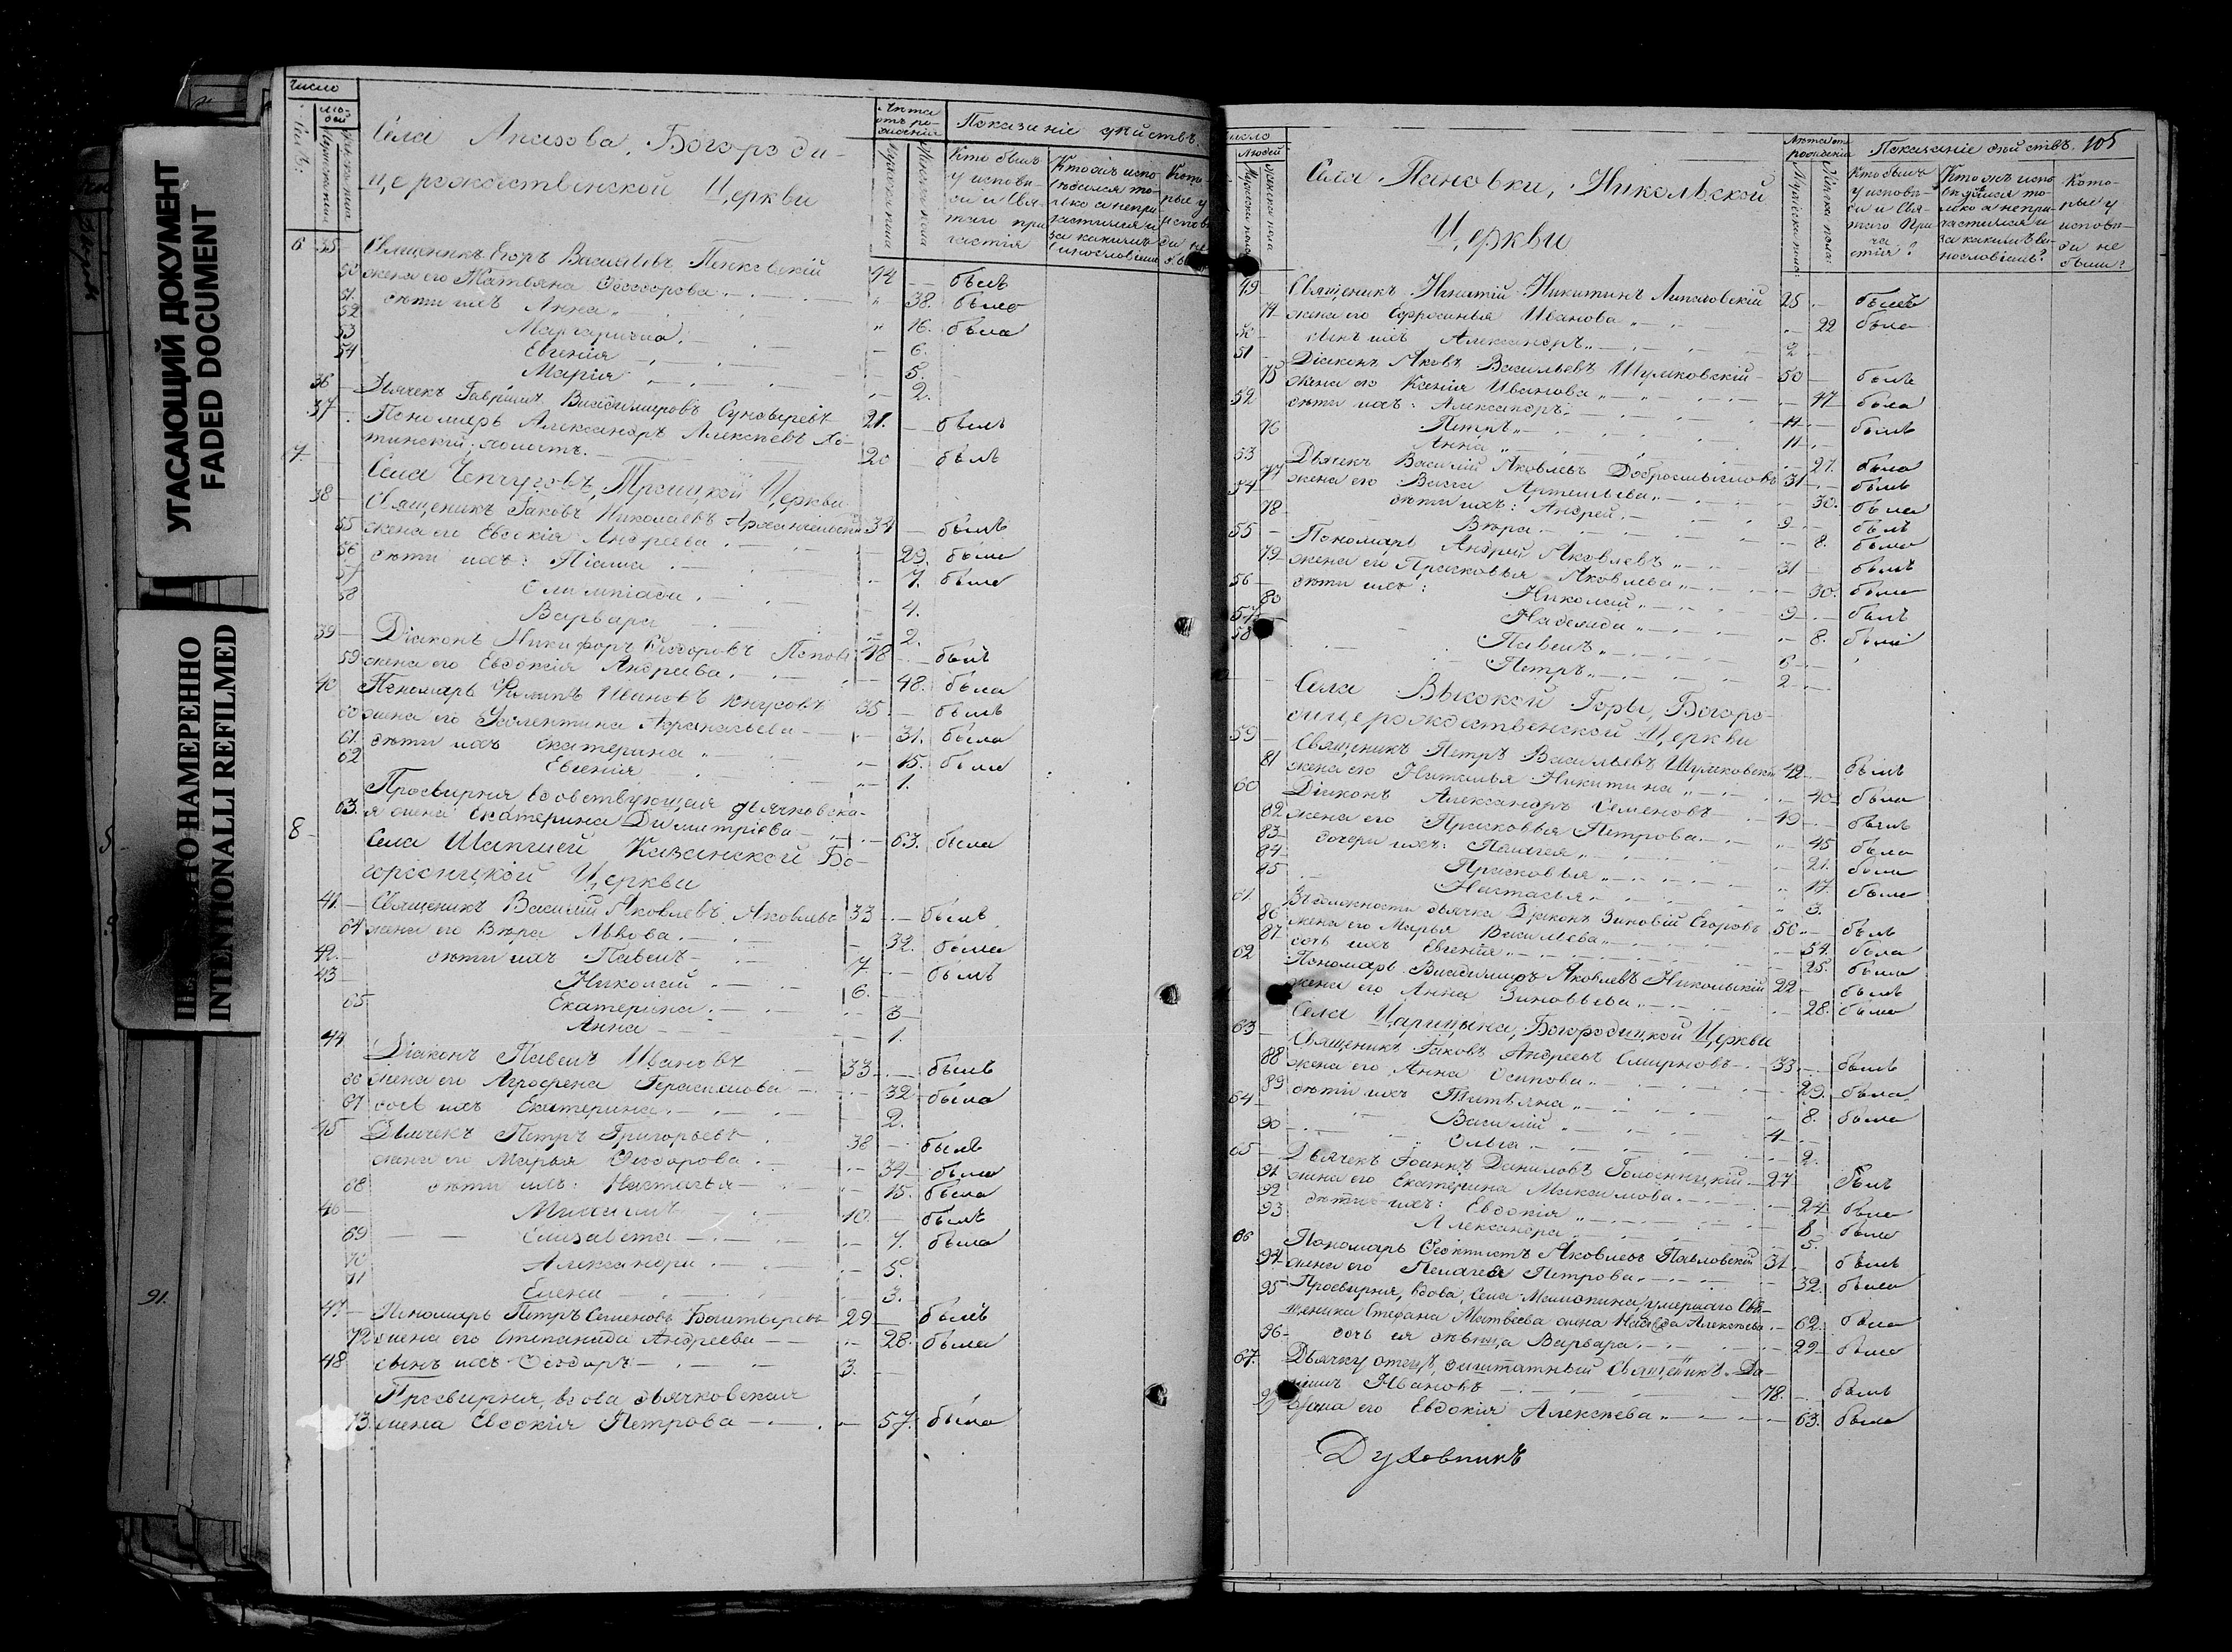 УГАСАЮЩИЙ ДОКУМЕНТ
FADED DOCUMENT
НАМЕРЕННО
INTENTIONALLI REFILMED
91.
Число
Лѣта отъ рожденія
Показаніе дѣйствъ
Кто былъ у исповѣди и Святаго причастія
Села Апазова, Богороди-
церождественской Церкви
6 35 Священникъ Егоръ Васильевъ Пеньковскій 44 былъ
50 жена его Татьяна Ѳеодорова 38. была
51. дѣти ихъ Анна 16. была
52 Маргарита 6.
53 Евгенія 5.
54 Марія 2.
36 Дьячекъ Гавріилъ Владимировъ Суновыревъ 21. былъ
37 Пономарь Александръ Алексѣевъ Хо-
тинскій, холостъ. 20 былъ
7. Села Чепчуговъ, Троицкой Церкви
38 Священникъ Іаковъ Николаевъ Архангельскій 34 былъ
55 жена его Евдокія Андреева 29. была
56 дѣти ихъ: 7. была
57 Олимпіада 4.
58 Варвара 2.
39 Діаконъ Никифоръ Ѳеодоровъ Поповъ 48 былъ
59 жена его Евдокія Андреева 48. была
40 Пономарь Филипъ Ивановъ 35 былъ
60 жена его Валентина Афанасьева 31. была
61 дѣти ихъ Екатерина 15. была
62 Евгенія 1.
Просвирня вдовствующая дьячковска-
63. я жена Екатерина Димитріева 63. была
8 Села Шапшей Казанской Бо-
городицкой Церкви
41 Священникъ Василій Яковлевъ Яковлевъ 33 былъ
64 жена его Вѣра Львова 32. была
42. дѣти ихъ Павелъ 7 былъ
43 Николай 6.
65 Екатерина 3
Анна 1.
44 Діаконъ Павелъ Ивановъ 33 былъ
66 жена его Агрофена Герасимова 32 была
67 дочь ихъ Екатерина 2.
45 Дьячекъ Петръ Григорьевъ 38 былъ
жена его Марья Ѳеодорова 34 была
68 дѣти ихъ: Настасья 15. была
46 Михаилъ 10. былъ
69 Елизавета 7. была
70 Александра 5.
71 Елена 3.
47 Пономарь Петръ Семеновъ Богатыревъ 29 былъ
72 жена его Степанида Андреева 28. была
48 сынъ ихъ Ѳеодоръ 3.
Просвирня, вдова дьячковская
73. жена Евдокія Петрова 57. была
Число
Людей
Лѣта отъ рожденія
Показаніе дѣйствъ. 105
Кто былъ у исповѣди и Святаго Причастія?
Которые у исповѣди не были?
Села Пановки, Никольской
Церкви
49 Священикъ Игнатій Никитинъ Липаовскій 25 былъ
74 жена его Ефросинья Иванова 22 была
50 сынъ ихъ Александръ 2
51 Діаконъ Яковъ Васильевъ Шумковскій 50 былъ
75 жена его Ксенія Иванова 47 была
52 дѣти ихъ: Александръ
Петръ 11 былъ
76 Анна 27. была
53 Дьячекъ Василій Яковлевъ Добросмысловъ 31 былъ
77 жена его Васса Артемьева 30. была
54 дѣти ихъ: Андрей 9 былъ
78 Вѣра 8. была
55 Пономарь Андрей Яковлевъ 31 былъ
79 жена его Прасковья Яковлева 30. была
56 дѣти ихъ: Николай 9 былъ
80 Надежда 8. была
57 Павелъ 6
58 Петръ 2
Села Высокой Горы, Богоро-
дицерождественской Церкви
59 Священикъ Петръ Васильевъ Шумковскій 42 былъ
81 жена его Наталья Никитина 40 была
60 Діаконъ Александръ Семеновъ 49 былъ
82 жена его Прасковья Петрова 45 была
83 дочери ихъ: Пелагея 21. была
84 Прасковья 17. была
85 Настасья 3.
61 Въ должности дьячка Діаконъ Зиновій Егоровъ 56 былъ
86 жена его Марья Васильева 54. была
87 дочь ихъ Евгенія 25. была
62 Пономарь Владимиръ Яковлевъ Никольскій 22 былъ
жена его Анна Зиновьева 28. была
Села Царицына, Богородицкой Церкви
63 Священикъ Іаковъ Андреевъ Смирновъ 33 былъ
88 жена его Анна Осипова 29. была
89 дѣти ихъ Татьяна 8. была
64 Василій 4
90 Ольга 2.
65 Дьячекъ Іоаннъ Даниловъ Голосницкій 27 былъ
91 жена его Екатерина Максимова 24 была
92 дѣти ихъ: Евдокія 8 была
93 Александра 5.
66 Пономарь Ѳеоктистъ Яковлевъ Павловскій 31 былъ
94 жена его Пелагея Петрова 32. была
95 Просвирня, вдова, Села Мамонина, умершаго Свя-
щеника Стефана Матвѣева жена Надежда Алексѣева 62. была
96 дочь ея дѣвица Варвара 29 была
67. Дьячку отецъ, заштатный Священикъ Да-
ніилъ Ивановъ 78. былъ
97 жена его Евдокія Алексѣева 63. была
Духовникъ